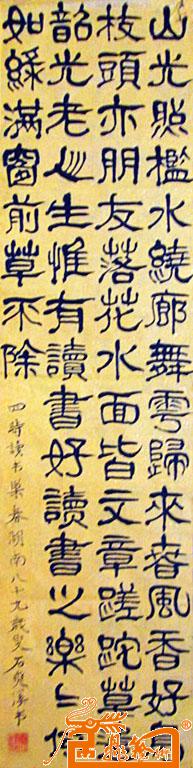 山光照檻水繞廊舞雩歸來春風香好鳥
枝頭亦朋友落花水面皆文章蹉跎莫
韶光老人生惟有讀書好讀書之樂〻何
如綠滿窗前草不除
四時讀书樂春湖南八十九歲叟石爽书